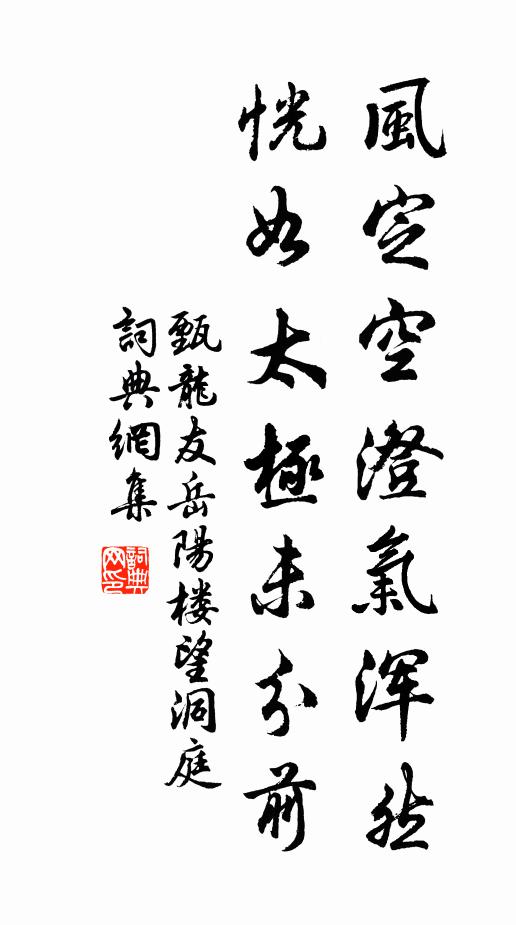 風定空澄氣浑然
恍如太極未分前
甄龍友岳陽楼望洞庭
詞典網集
詞典网印